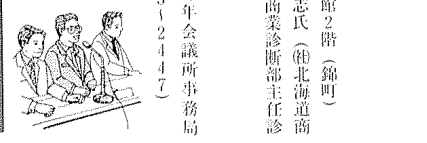 館2階(錦町)
志氏(㈳北海道商
商業診断部主任診
年会議所事務局
3~2447)